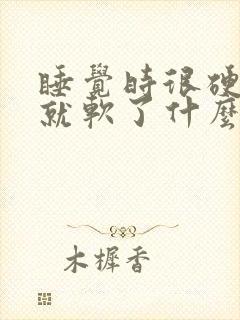 睡覺時很硬
就軟了什麼
木樨香